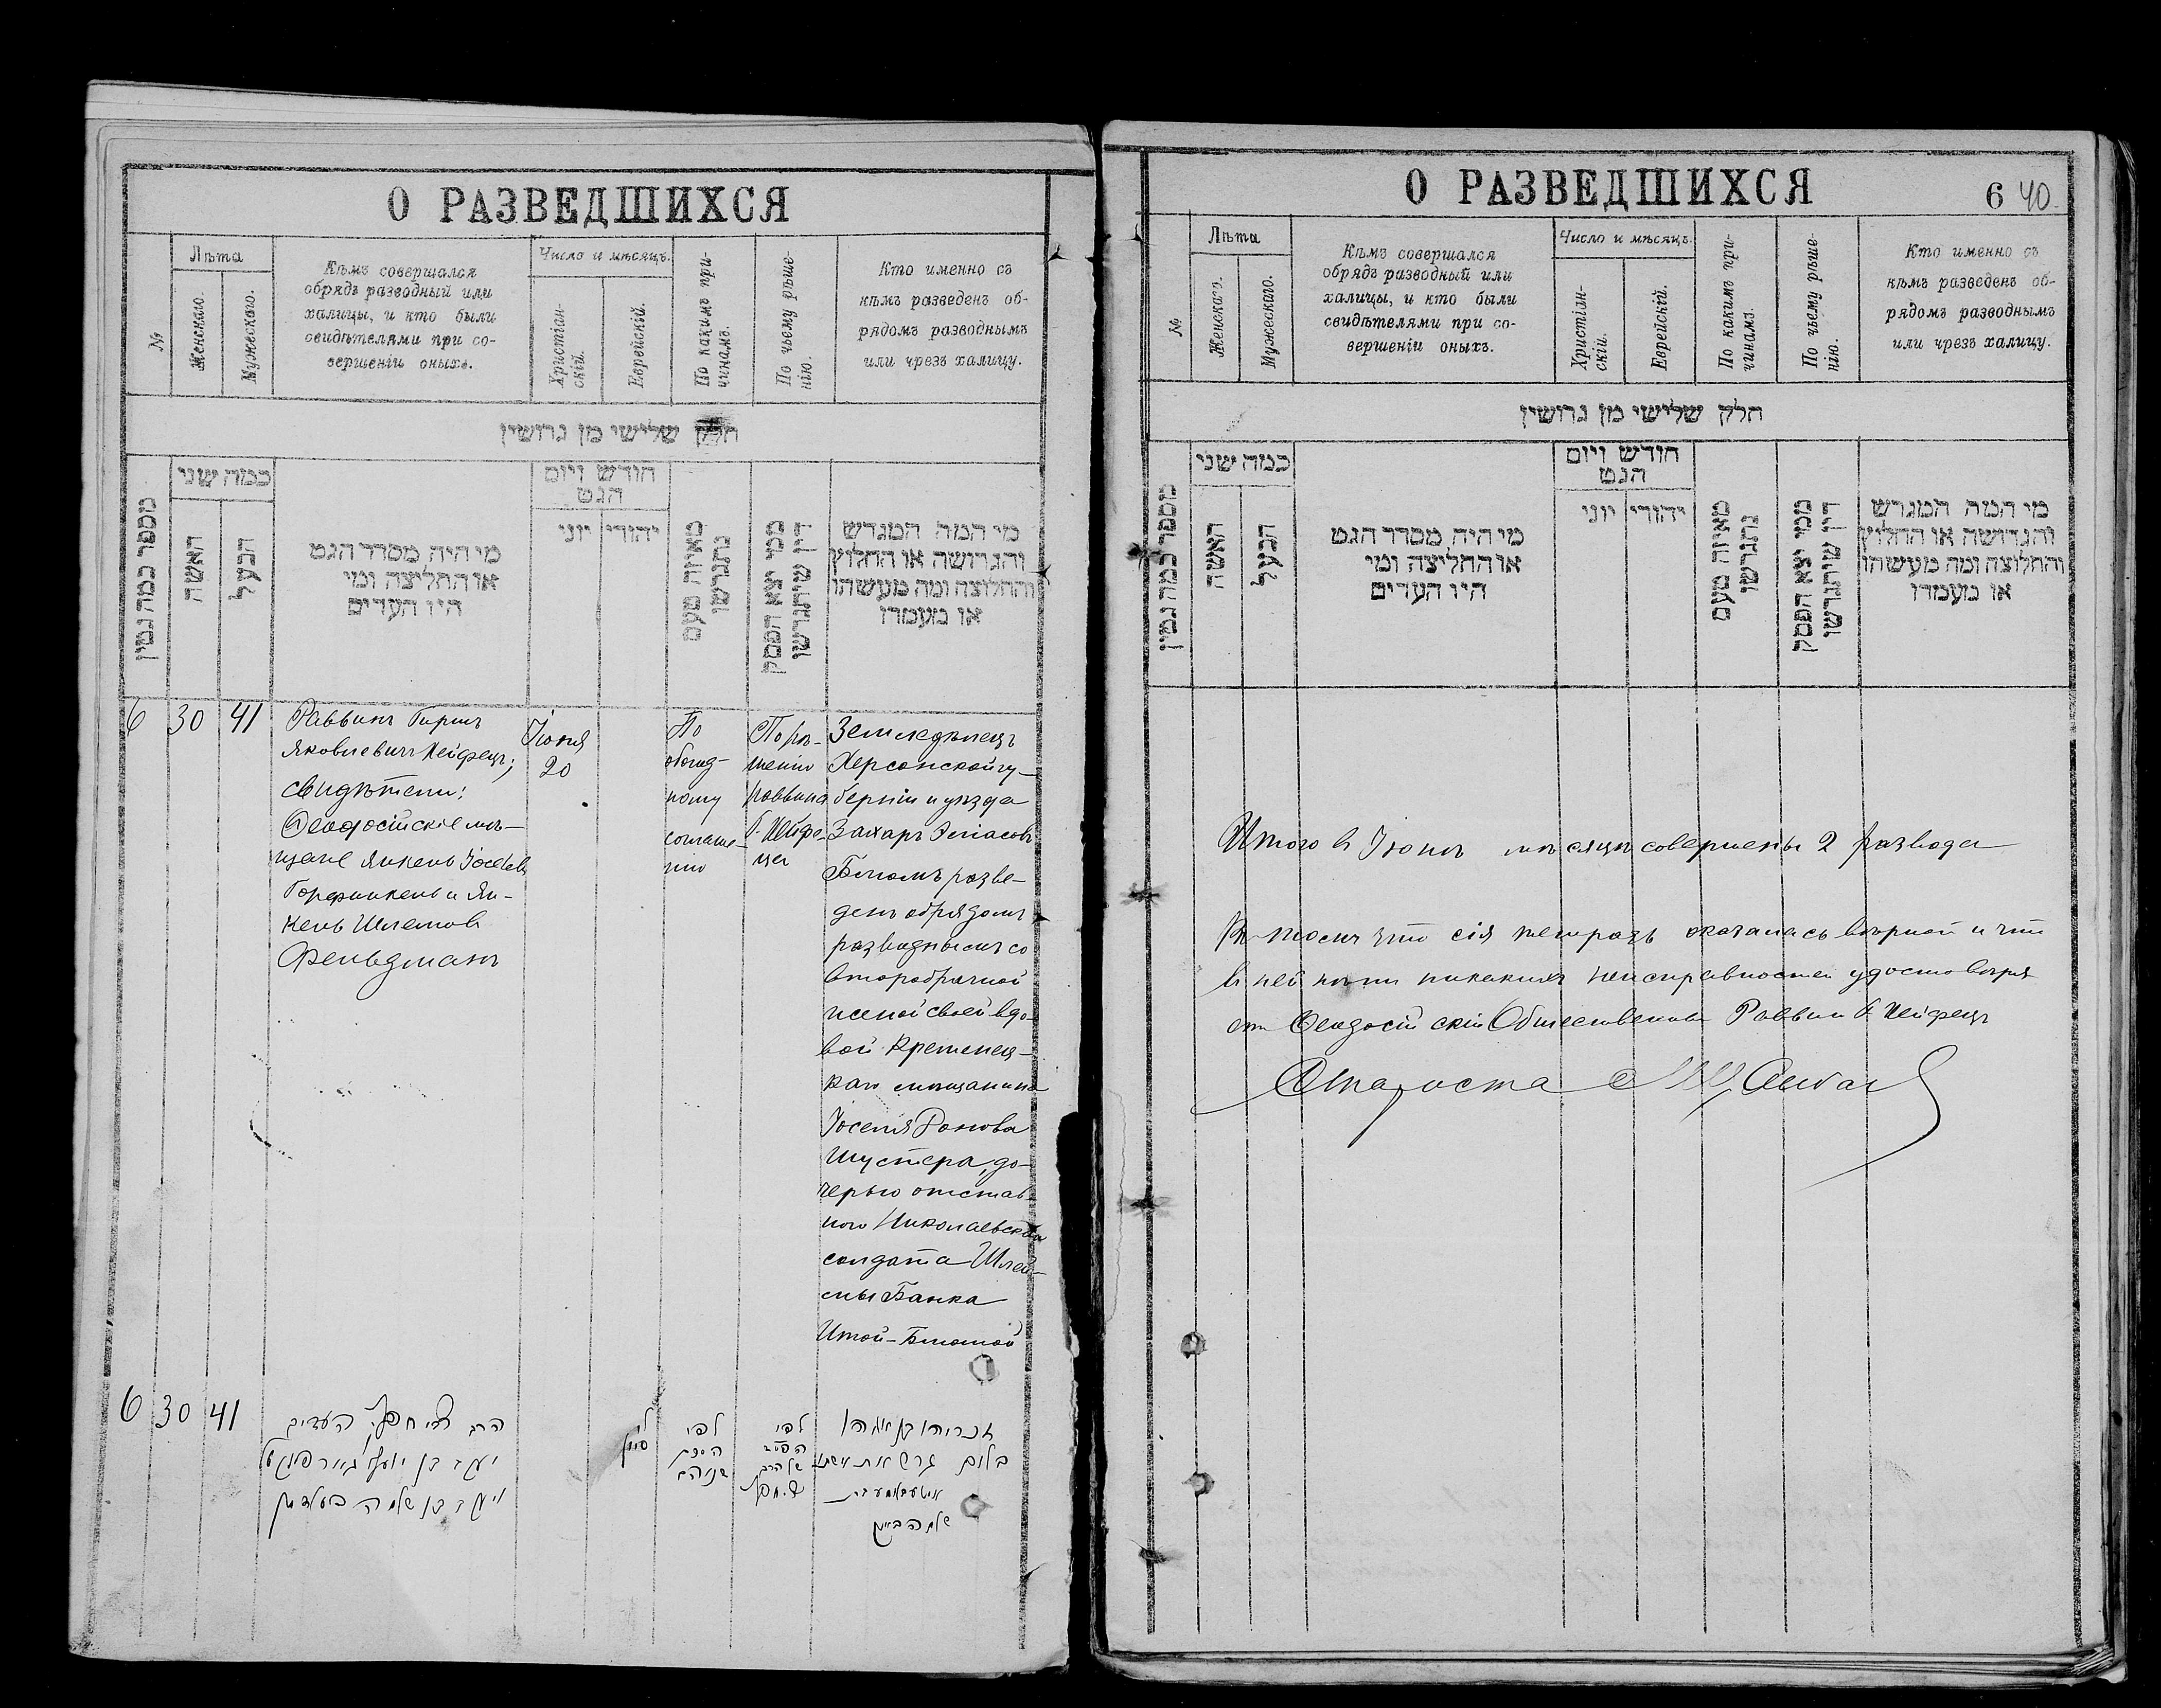 О РАЗВЕДШИХСЯ
№
Лѣта
Женскаго.
Мужескаго.
Кѣмъ совершался
обрядъ разводный или
халицы, и кто были
свидѣтелями при со-
вершеніи оныхъ.
Число и мѣсяцъ.
Христіан-
скій.
Еврейскій.
По какимъ при-
чинамъ.
По чьему рѣше-
нію.
Кто именно съ
кѣмъ разведенъ об-
рядомъ разводнымъ
или чрезъ халицу.
חלק שלישי מן גרושין
מספר כמה גטין
כמה שני
האשה
הבעל
מי היה מסדר הגט
או החליצה ומי
היו העדים
חודש ויום
הגט
יוני
יהודי
מאיזה טעם
נתגרשו
ממי יצא הפסק
דין שיתגרשו
מי המה המגרש
והגרושה או החלוץ
והחלוצה ומה מעשהו
או מעמדו
6 30 41
Раввинъ Гиршъ
Яковлевичъ Хейфецъ;
свидѣтели:
Ѳеодосійскіе мѣ-
щане Янкель Іосевъ
Горфинкель и Ян-
кель Шлемовъ
Фельдманъ
Іюня
20
По
обоюд-
ному
соглаше-
нію
По рѣ-
шенію
раввина
Г. Хейфе-
ца
Земледѣлецъ
Херсонской гу-
берніи и уѣзда
Захаръ Эліасовъ
Блюмъ разве-
денъ обрядомъ
разводнымъ со
второбрачной
женой своей вдо-
вой Кременец-
каго мѣщанина
Іоселя
Шустера, до-
черью отстав-
ного Николаевскаго
солдата Шлей-
мы Банка
Итой-Блюмой
6 30 41
הרב חפץ העדים
יעקב בן יוסף
ויעקב בן שלמה פעלדמאן
סיון
לפי
הסכם
שניהם
לפי
הפסק
של הרב
חפץ
זכריהו בן אליהו
בלום גרש את אשתו
איטע בלומע בת
שלמה באנק
О РАЗВЕДШИХСЯ
6 40
№
Лѣта
Женскаго.
Мужескаго.
Кѣмъ совершался
обрядъ разводный или
халицы, и кто были
свидѣтелями при со-
вершеніи оныхъ.
Число и мѣсяцъ.
Христіан-
скій.
Еврейскій.
По какимъ при-
чинамъ.
По чьему рѣше-
нію.
Кто именно съ
кѣмъ разведенъ об-
рядомъ разводнымъ
или чрезъ халицу.
חלק שלישי מן גרושין
מספר כמה גטין
כמה שני
האשה
הבעל
מי היה מסדר הגט
או החליצה ומי
היו העדים
חודש ויום
הגט
יוני
יהודי
מאיזה טעם
נתגרשו
ממי יצא הפסק
דין שיתגרשו
מי המה המגרש
והגרושה או החלוץ
והחלוצה ומה מעשהו
או מעמדו
Итого въ Іюнѣ мѣсяцѣ совершены 2 развода
Въ томъ что сія тетрадь оказалась вѣрной и что
въ ней нѣтъ никакихъ неисправностей удостовѣря-
етъ Ѳеодосійскій Общественный Раввинъ Г. Хейфецъ
Староста